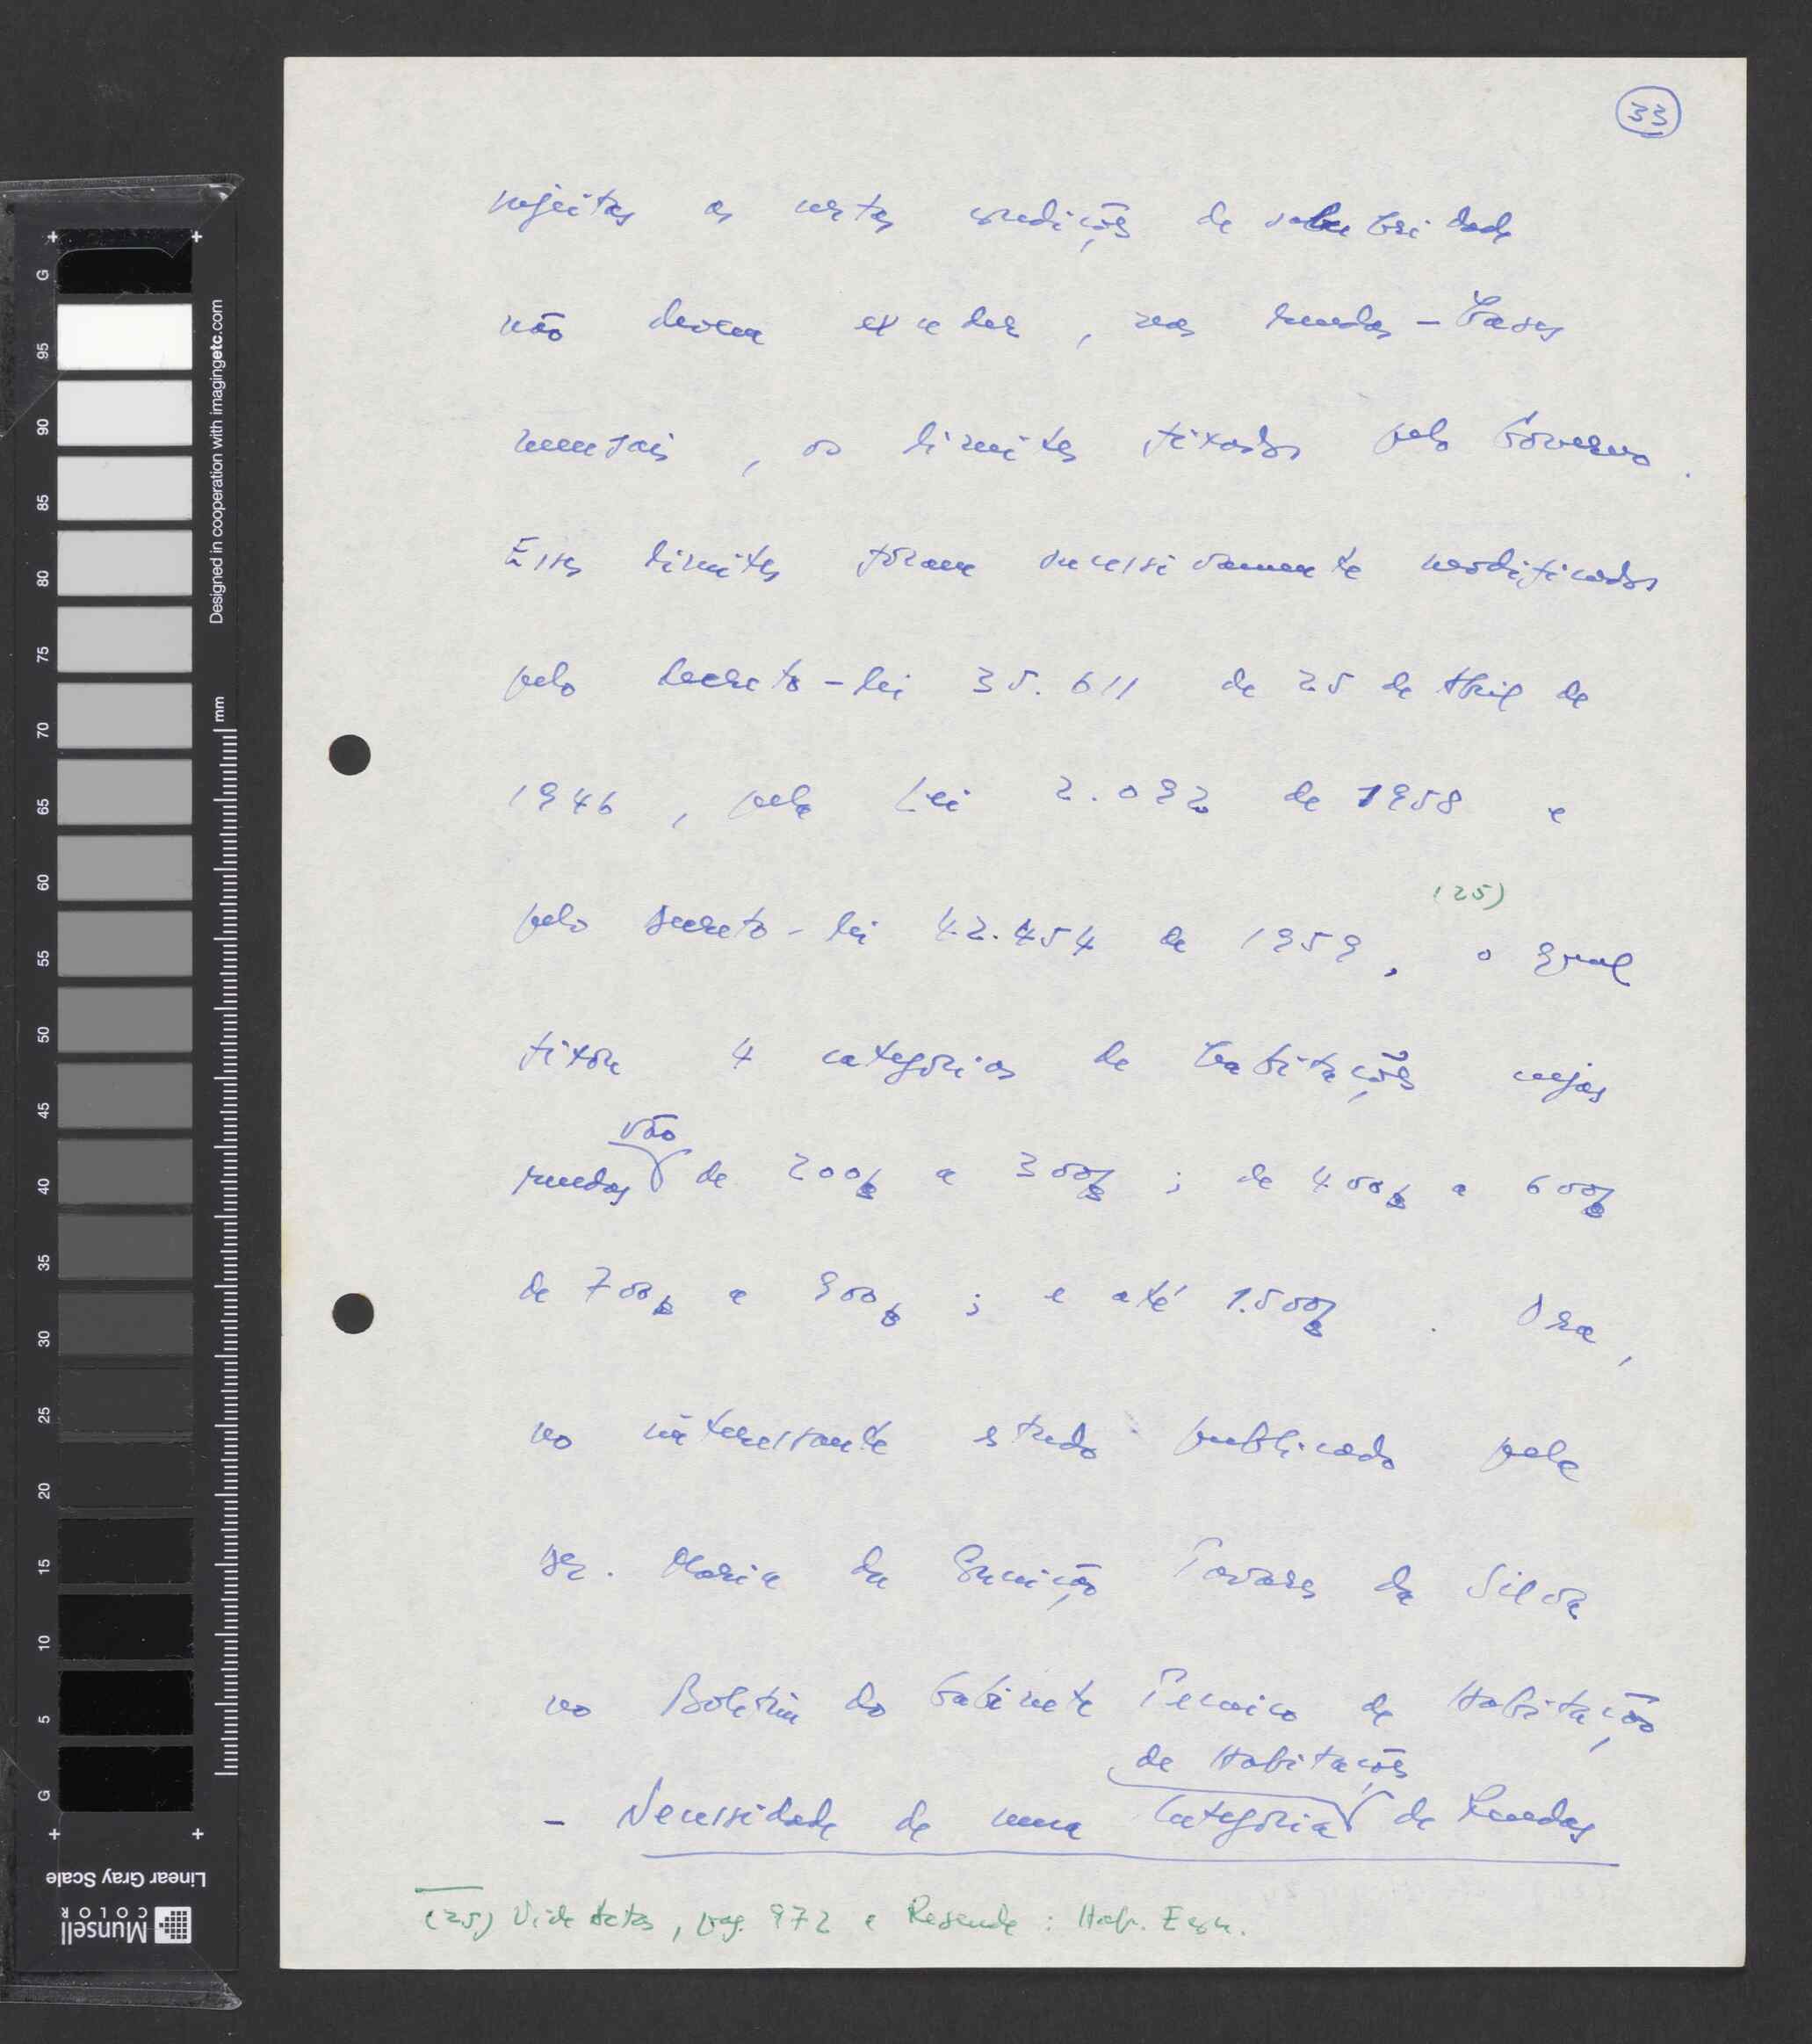 33
sujeitas a certas condições de salubridade
não devem exceder, nas rendas-bases
mensais, os limites fixados pelo Governo.
Esses limites foram sucessivamente modificados
pelo Decreto-lei 35.611 de 25 de Abril de
1946, pela Lei 2.092 de 1958 e
(25)
pelo Decreto-lei 42.454 de 1959, o qual
fixou 4 categorias de habitações cujas
vão
rendas de 200$ a 300$; de 400$ a 600$
de 700$ a 900$; e até 1.500$. Ora,
no interessante estudo publicado pela
Dr. Maria da Tavares da Silva
no Boletim do Gabinete Tecnico de Habitação
de Habitações
- Necessidade de uma Categoria de Rendas
(25) Vide Actas, pag. 972 e Resende: Hab. Econ.
G
95
90
85
80
75
70
65
60
55
50
45
40
35
30
25
20
15
10
5
G
Designed in cooperation with imagingetc.com
mm
Linear Gray Scale
Munsell
COLOR